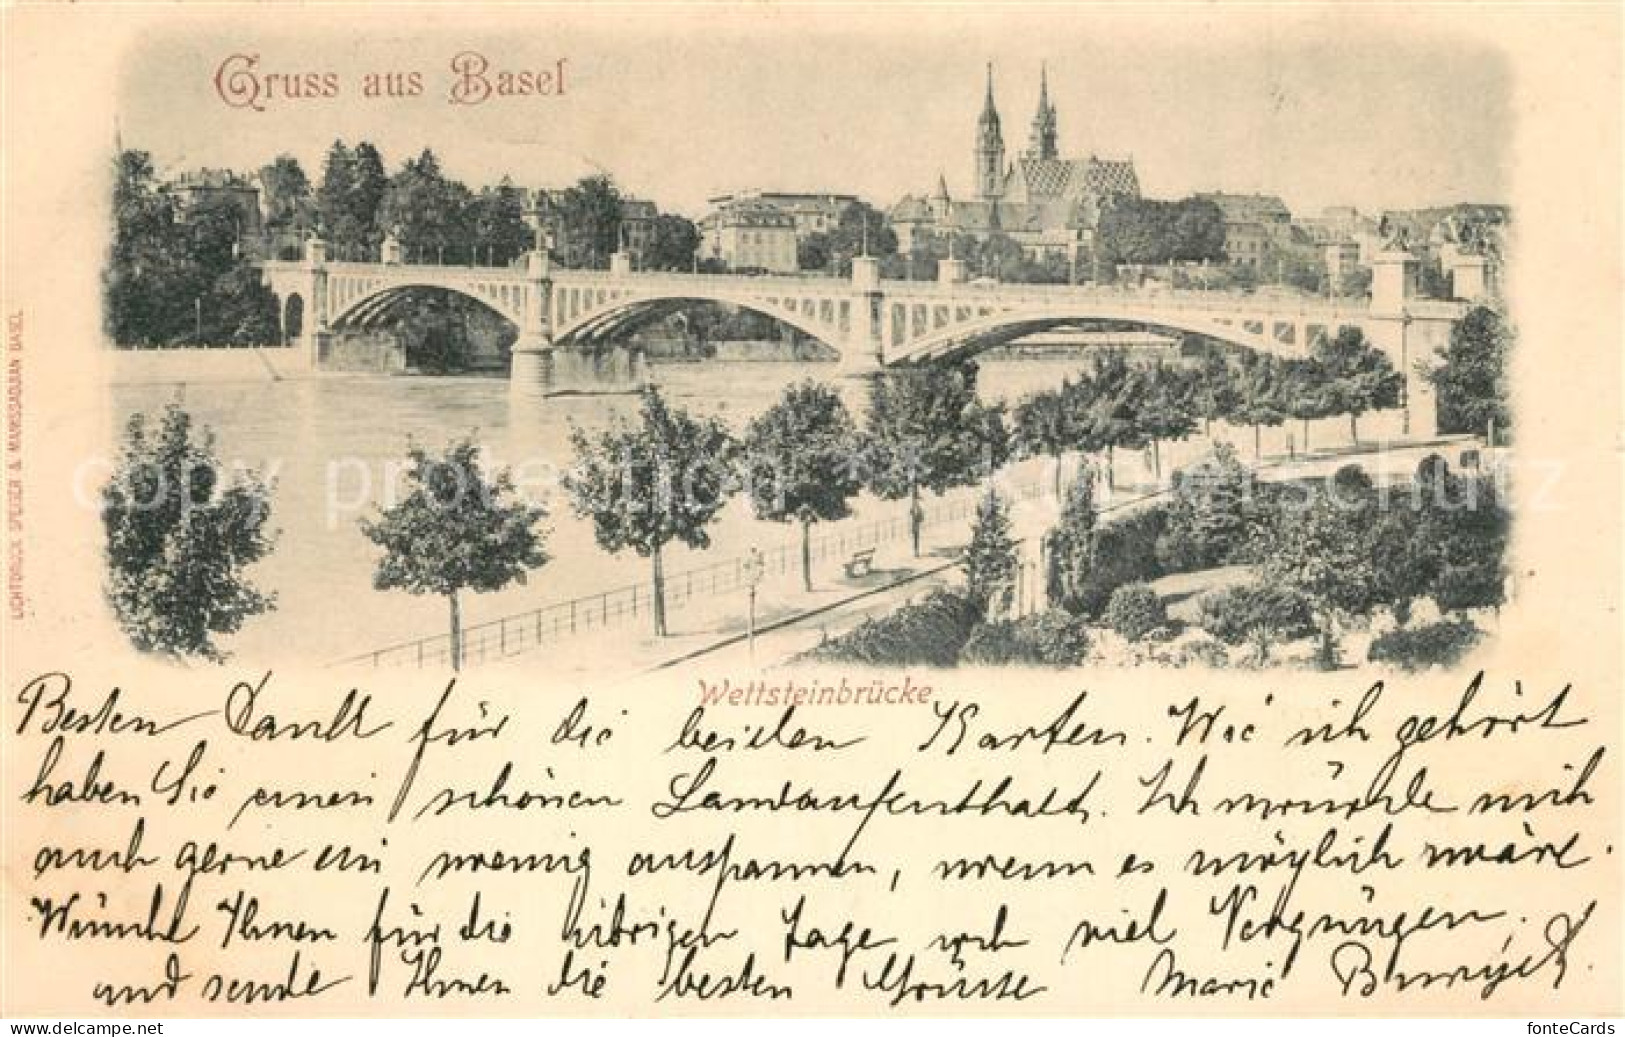 Gruss aus Basel
LICHTDRUCK SPEISER & MANISSADJIAN BASEL
copy protection * Urheberschutz
Wettsteinbrücke
Besten Dank für die beiden Karten. Wie ich gehört
haben Sie einen schönen Landaufenthalt. Ich möchte mich
auch gerne ein wenig ausspannen, wenn es möglich wäre.
Wünsche Ihnen für die übrigen Tage noch viel Vergnügen,
und sende Ihnen die besten Grüsse Marie
www.delcampe.net
fonteCards